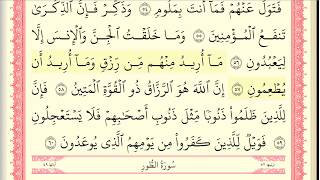 فَتَوَلَّ عَنْهُمْ فَمَآ أَنتَ بِمَلُومٍ ٥٤ وَذَكِّرْ فَإِنَّ ٱلذِّكْرَىٰ
تَنفَعُ ٱلْمُؤْمِنِينَ ٥٥ وَمَا خَلَقْتُ ٱلْجِنَّ وَٱلْإِنسَ إِلَّا
لِيَعْبُدُونِ ٥٦ مَآ أُرِيدُ مِنْهُم مِّن رِّزْقٍ وَمَآ أُرِيدُ أَن
يُطْعِمُونِ ٥٧ إِنَّ ٱللَّهَ هُوَ ٱلرَّزَّاقُ ذُو ٱلْقُوَّةِ ٱلْمَتِينُ ٥٨ فَإِنَّ
لِلَّذِينَ ظَلَمُوا۟ ذَنُوبًا مِّثْلَ ذَنُوبِ أَصْحَٰبِهِمْ فَلَا يَسْتَعْجِلُونِ
٥٩ فَوَيْلٌ لِّلَّذِينَ كَفَرُوا۟ مِن يَوْمِهِمُ ٱلَّذِى يُوعَدُونَ ٦٠
سُورَةُ الطُّورِ